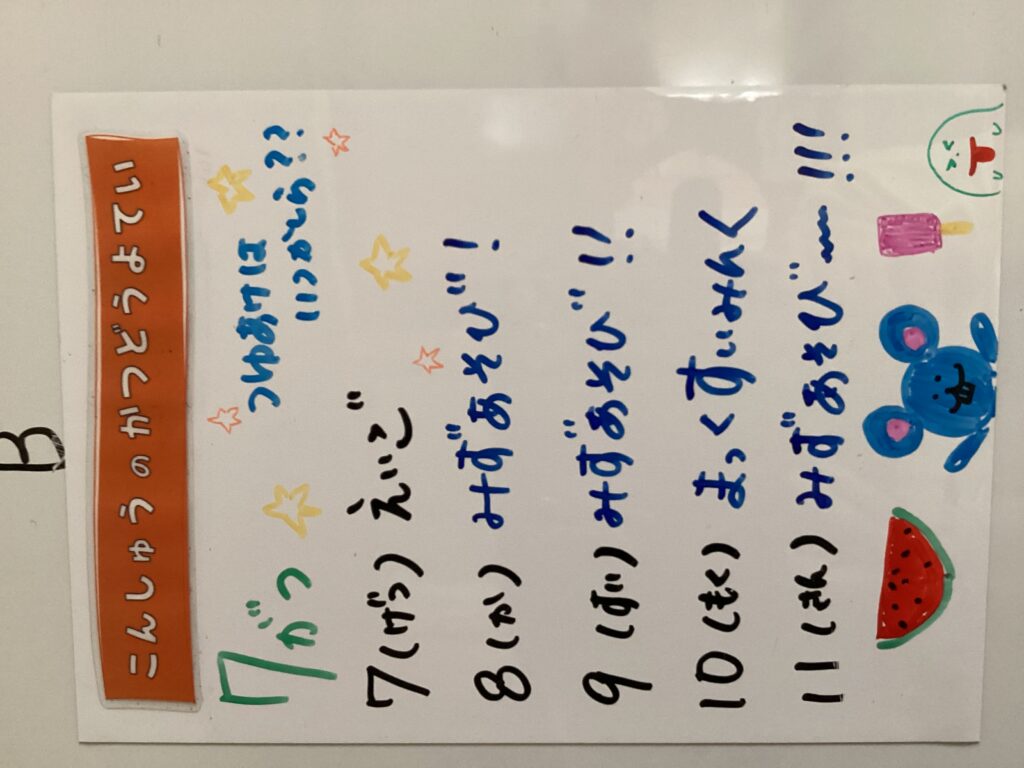 B
こんしゅうのかつどうよてい
7がつ
つゆあけは
いつかしら??
7(げつ) えいご
8(か) みずあそび!
9(すい) みずあそび!!
10(もく) まっくすいみんく
11(きん) みずあそび〜!!!